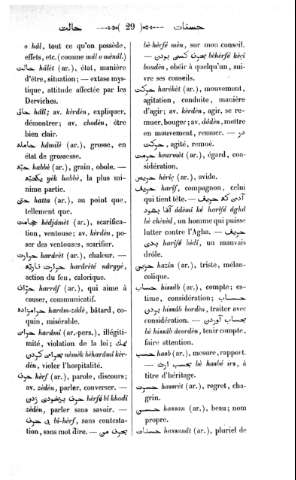 حالت 29 حسنات
o hâl, tout ce qu'on possède,
effets, etc. (comme mâl o mendl.)
حالت hâlét (ar.), état, manière
d'être, situation; — extase mys-
tique, attitude affectée par les
Derviches.
حالی hâli; av. kirdén, expliquer,
démontrer; av. choden, être
bien clair.
حامله hâmilé (ar.), grosse, en
état de grossesse.
حبّه habbè (ar.), grain, obole. —
yek habbé, la plus mi-
nime partie.
حتی hatta (ar.), au point que,
tellement que.
حجامت hédjâmét (ar.), scarifica-
tion, ventouse; av. kérden, po-
ser des ventouses, scarifier.
حرارت harârét (ar.), chaleur. —
harârété
action du feu, calorique.
حرّاف harrâf (ar.), qui aime à
causer, communicatif.
حرامزاده harâm-zâdè, bâtard, co-
quin, misérable.
حرامی harâmî (ar.-pers.), illégiti-
mité, violation de la loi;
kérden,
violer l'hospitalité.
حرف hèrf (ar.), parole, discours;
av. zèdén, parler, converser. —
hèrfé bi khodî
zèdén, parler sans savoir. —
bî-hèrf, sans contesta-
tion, sans mot dire. —
bè hèrfé mèn, sur mon conseil.
bouden, obéir à quelqu'un, sui-
vre ses conseils.
حرکت harikét (ar.), mouvement,
agitation, conduite, manière
d'agir; av. kérden, agir, se re-
muer, bouger; av. dâden, mettre
en mouvement, remuer. — در
حرکت, agité, remué.
حرمت hourmét (ar.), égard, con-
sidération.
حریص hériç (ar.), avide.
حریف harîf, compagnon, celui
qui tient tête.
harîfé âghâ
un homme qui puisse
lutter contre l'Agha. — حریف
بدی harîfé bèdî, un mauvais
drôle.
حزین hazîn (ar.), triste, mélan-
colique.
حساب hisâb (ar.), compte; es-
time, considération;
hisâb traiter avec
considération. —
bè hisâb âvorden, tenir compte,
faire attention.
حسب hasb (ar.), mesure, rapport.
à
titre d'héritage.
حسرت hasrét (ar.), regret, cha-
grin.
حسن hassan (ar.), beau; nom
propre.
حسنات hassanât (ar.), pluriel de